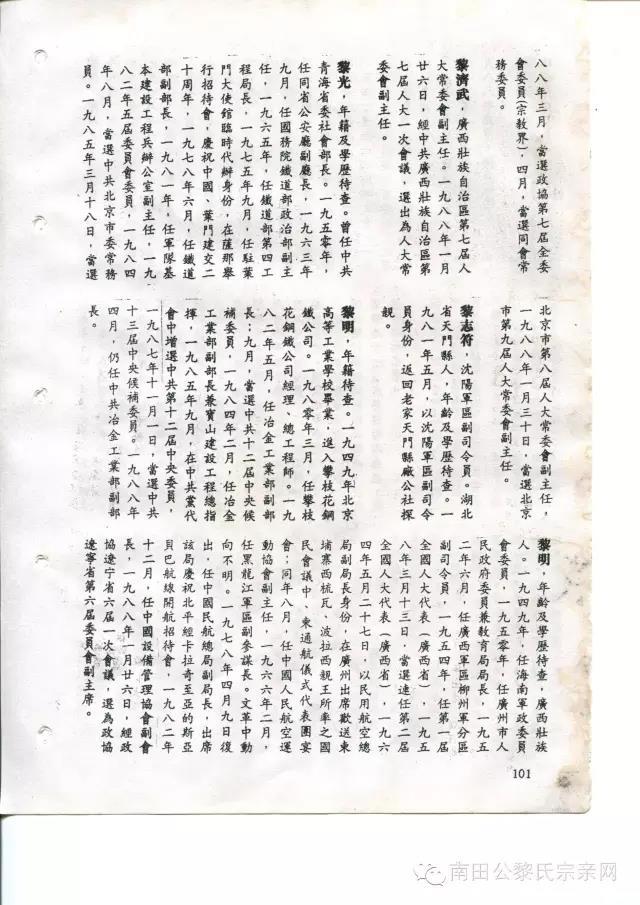 八八年三月，當選政協第七屆全委
會委員(宗教界)，四月，當選同會常
務委員。
黎濟武，廣西壯族自治區第七屆人
大常委會副主任。一九八八年一月
廿六日，經中共廣西壯族自治區第
七屆人大一次會議，選出為人大常
委會副主任。
黎光，年籍及學歷待查。曾任中共
青海省委社會部長。一九五０年，
任同省公安廳副廳長，一九六三年
九月，任國務院鐵道部政治部副主
任，一九六五年，任鐵道部第四工
程局長，一九七五年九月，任駐葉
門大使館臨時代辦身份，在薩那舉
行招待會，慶祝中國、葉門建交二
十周年，一九七八年六月，任鐵道
部副部長，一九八一年，任軍隊基
本建設工程兵辦公室副主任，一九
八二年五屆委員會委員，一九八四
年八月，當選中共北京市委常務
員。一九八五年三月十八日，當選
北京市第八屆人大常委會副主任，
一九八八年一月三十日，當選北京
市第九屆人大常委會副主任。
黎志符，沈陽軍區副司令員。湖北
省天門縣人，年齡及學歷待查。一
九八一年五月，以沈陽軍區副司令
員身份，返回老家天門縣廠公社探
親。
黎明，年籍待查。一九四九年北京
高等工業學校畢業，進入攀枝花鋼
鐵公司。一九八０年三月，任攀枝
花鋼鐵公司經理、總工程師。一九
八二年五月，任冶金工業部副部
長；九月，當選中共十二屆中央候
補委員，一九八四年二月，任冶金
工業部副部長兼寶山建設工程總指
揮，一九八五年九月，在中共黨代
會中增選中共第十二屆中央委員，
一九八七年十一月一日，當選中共
十三屆中央候補委員。一九八八年
四月，仍任中共冶金工業部副部
長。
黎明，年齡及學歷待查，廣西壯族
人。一九四九年，任海南軍政委員
會委員，一九五０年，任廣州市人
民政府委員兼教育局局長，一九五
二年六月，任廣西軍區柳州軍分區
副司令員，一九五四年，任第一屆
全國人大代表（廣西省），一九五
八年三月十三日，當選連任第二屆
全國人大代表（廣西省），一九六
四年五月二十七日，以民用航空總
局副局長身份，在廣州出席歡送柬
埔寨西梳瓦、波拉西親王所率之國
民會議中、柬通航儀式代表團宴
會；同年八月，任中國人民航空運
動協會副主任，一九六六年二月，
任黑龍江軍區副參謀長。文革中動
向不明。一九七八年四月九日復
出，任中國民航總局副局長，出席
該局慶祝北平經卡拉奇至亞的斯亞
貝巴航線開航招待會，一九八二年
十二月，任中國設備管理協會副會
長，一九八八年一月廿六日，經政
協遼宁省六屆一次會議，選為政協
遼寧省第六屆委員會副主席。
101
南田公黎氏宗亲网